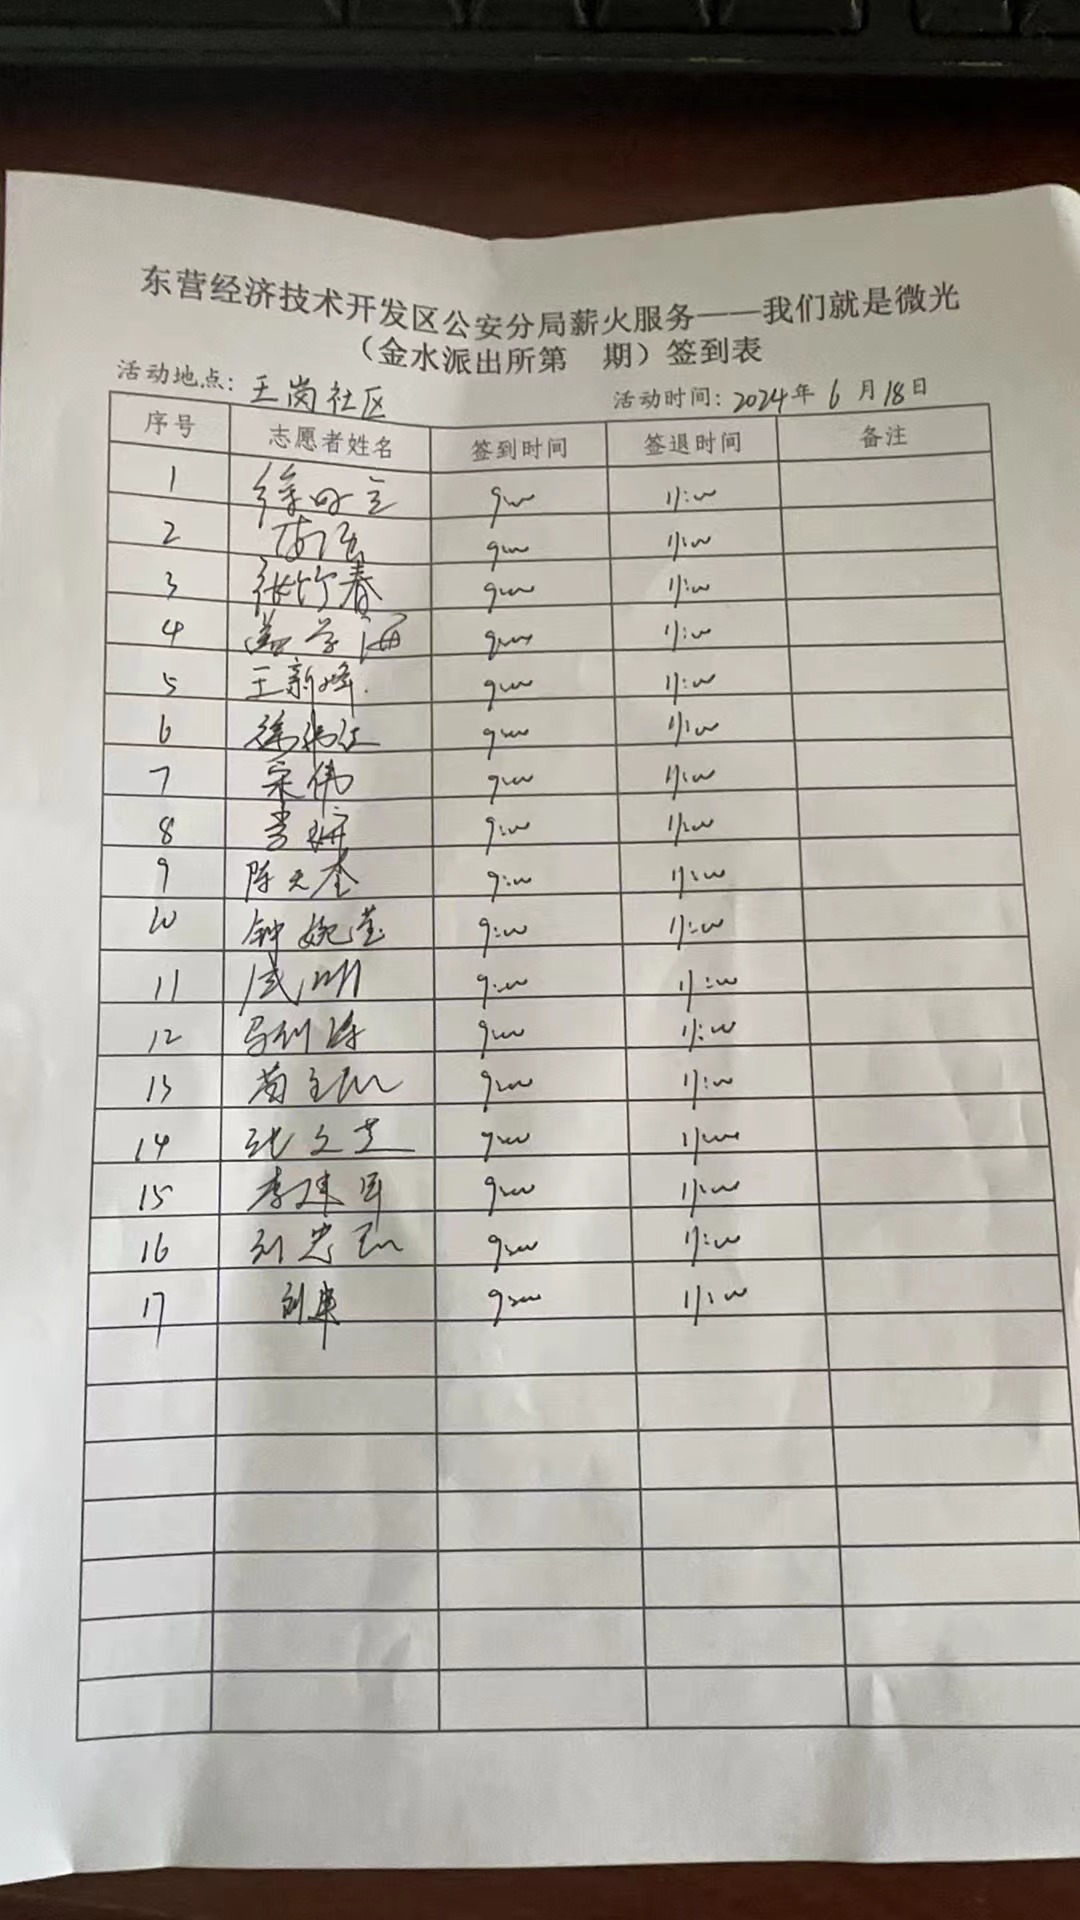 东营经济技术开发区公安分局薪火服务——我们就是微光
（金水派出所第 期）签到表
活动地点：王岗社区 活动时间：2024年6月18日
序号 志愿者姓名 签到时间 签退时间 备注
1 9:00 11:00
2 9:00 11:00
3 张竹春 9:00 11:00
4 盖学海 9:00 11:00
5 王新峰 9:00 11:00
6 徐 9:00 11:00
7 宋伟 9:00 11:00
8 9:00 11:00
9 陈天奎 9:00 11:00
10 钟婉莹 9:00 11:00
11 9:00 11:00
12 9:00 11:00
13 9:00 11:00
14 张文芝 9:00 11:00
15 李建军 9:00 11:00
16 刘忠 9:00 11:00
17 刘建 9:00 11:00